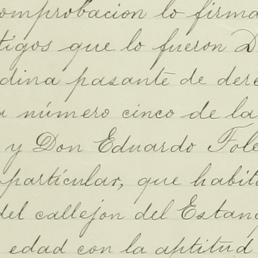 omprobacion lo firma
tigos que lo fueron D
dina pasante de dere
a número cinco de la
y Don Eduardo Tole
particular, que habit
del callejon del Estan
edad con la aptitud